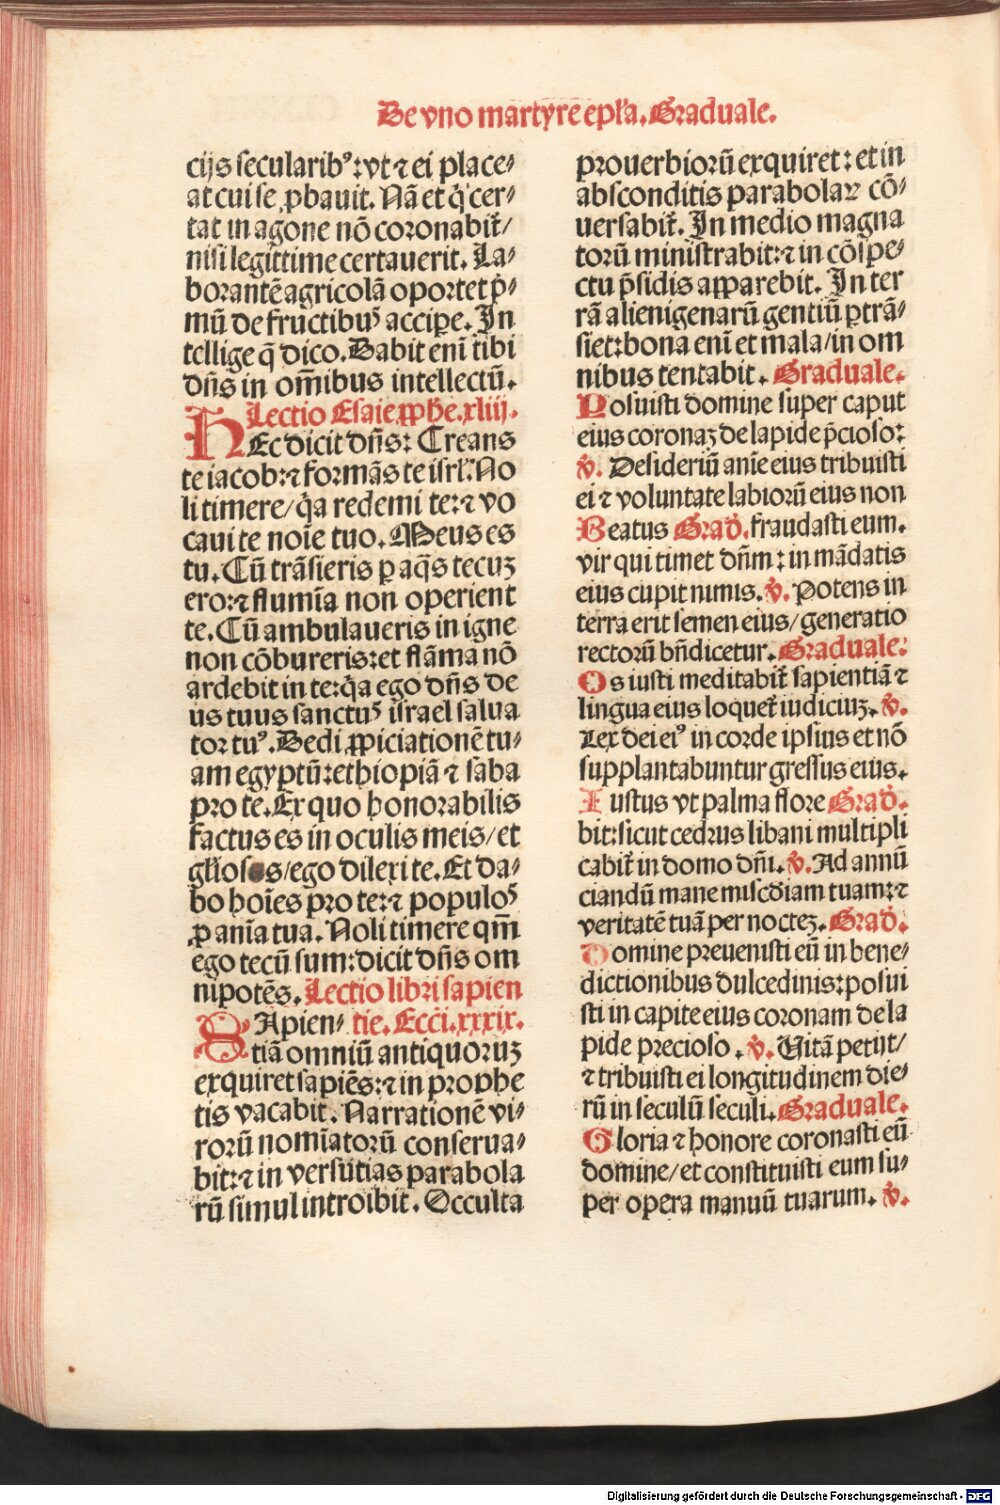 De vno martyre ep̄la. Graduale.
cijs secularibꝰ: vt ⁊ ei place⸗
at cui se ꝓbauit. Nā et q̇ cer⸗
tat in agone nō coronabit̄/
nisi legittime certauerit. La⸗
borantē agricolā oportet p̄⸗
mū de fructibuꝰ accipe. In
tellige q̄ dico. Dabit enī tibi
dn̄s in om̄ibus intellectū.
Lectio Esaie ꝓphe. xliij.
HEc dicit dn̄s: Creans
te iacob: ⁊ formās te isrl̄. No
li timere/ q̇a redemi te: ⁊ vo
caui te noīe tuo. Meus es
tu. Cū trāsieris ꝑ aq̄s tecuꝫ
ero: ⁊ flumīa non operient
te. Cū ambulaueris in igne
non cōbureris: et flāma nō
ardebit in te: q̇a ego dn̄s de
us tuus sanctuꝰ israel salua
tor tuꝰ. Dedi ꝓpiciationē tu⸗
am egyptū: ethiopiā ⁊ saba
pro te. Ex quo honorabilis
factus es in oculis meis/ et
gl̄iosus/ ego dilexi te. Et da⸗
bo hoīes pro te: ⁊ populoꝰ
ꝓ anīa tua. Noli timere qm̄
ego tecū sum: dicit dn̄s om
nipotēs. Lectio libri sapien
SApien⸗ tie. Ecci. xxxix.
tiā omniū antiquoruꝫ
exquiret sapiēs: ⁊ in prophe
tis vacabit. Narrationē vi⸗
rorū nomīatorū conserua⸗
bit: ⁊ in versutias parabola
rū simul introibit. Occulta
prouerbiorū exquiret: et in
absconditis parabolaꝝ cō⸗
uersabit̄. In medio magna
torū ministrabit: ⁊ in cōspe⸗
ctu p̄sidis apparebit. In ter
rā alienigenarū gentiū ꝑtrā⸗
siet: bona enī et mala/ in om
nibus tentabit. Graduale.
Posuisti domine super caput
eius coronaꝫ de lapide p̄cioso:
v̇. Desideriū anīe eius tribuisti
ei ⁊ voluntate labiorū eius non
Beatus Grad̄. fraudasti eum.
vir qui timet dn̄m: in mādatis
eius cupit nimis. v̇. Potens in
terra erit semen eius/ generatio
rectorū bn̄dicetur. Graduale.
Os iusti meditabit̄ sapientiā ⁊
lingua eius loquet̄ iudiciuꝫ. v̇.
Lex dei eiꝰ in corde ipsius et nō
supplantabuntur gressus eius.
Iustus vt palma flore Grad̄.
bit: sicut cedrus libani multipli
cabit̄ in domo dn̄i. v̇. Ad annū
ciandū mane miscd̄iam tuam: ⁊
veritatē tuā per nocteꝫ. Grad̄.
Domine preuenisti eū in bene⸗
dictionibus dulcedinis: posui
sti in capite eius coronam de la
pide precioso. v̇. Vitā petijt/
⁊ tribuisti ei longitudinem die⸗
rū in seculū seculi. Graduale.
Gloria ⁊ honore coronasti eū
domine/ et constituisti eum su⸗
per opera manuū tuarum. v̇.
Digitalisierung gefördert durch die Deutsche Forschungsgemeinschaft - DFG